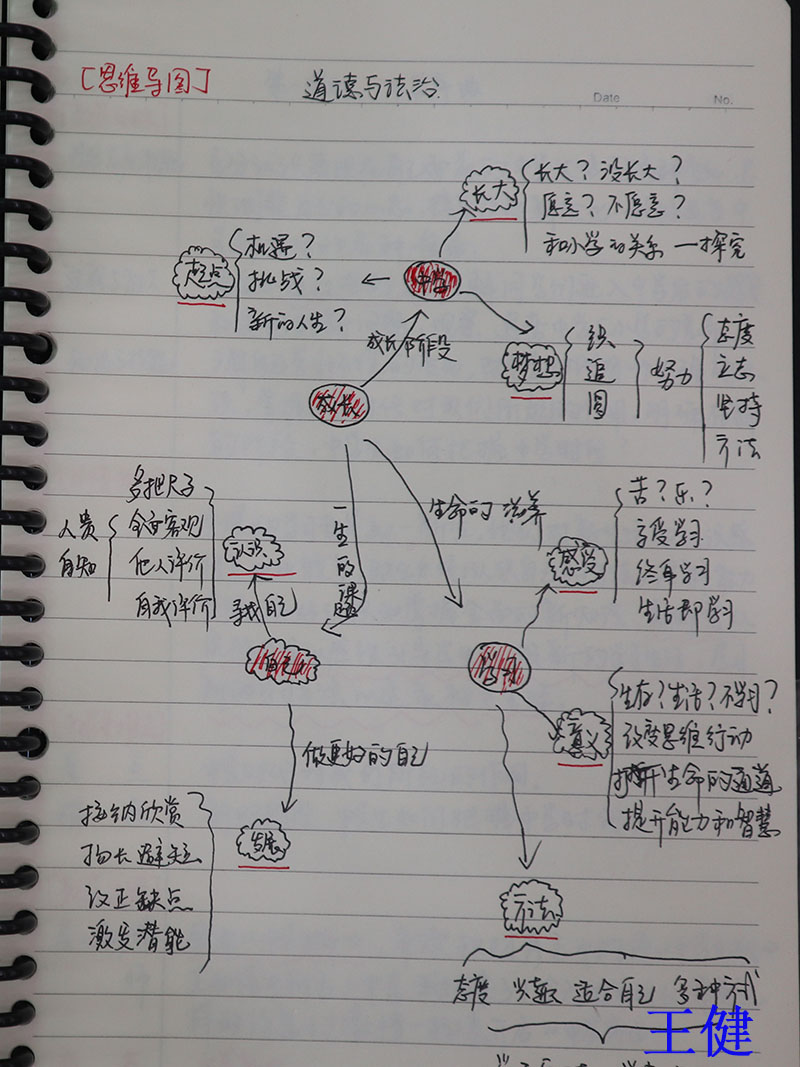 [思维导图]
道德与法治
Date
No.
长大
长大？没长大？
愿意？不愿意？
和小学的关系 一探究
起点
机遇？
挑战？
新的人生？
中学
成长阶段
梦想
织
追
圆
努力
态度
立志
坚持
方法
成长
一生的课题
生命的 滋养
人贵
自知
多把尺子
全面客观
他人评价
自我评价
认识
寻找自己
感受
苦？乐？
享受学习
终身学习
生活即学习
学习
意义
生存？生活？不学习？
改变思维行动
打开生命的通道
提升能力和智慧
做更好的自己
发展
接纳欣赏
扬长避短
改正缺点
激发潜能
方法
态度 兴趣 适合自己 多种方式
王健